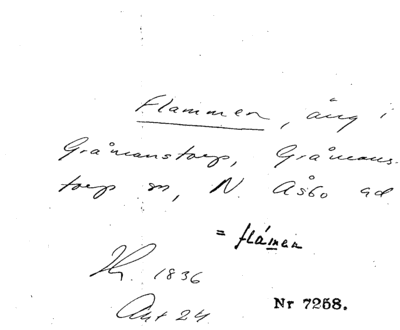 Flammen, äng i
Gråmanstorp, Gråmans-
torp sn, N. Åsbo hd
= flámen
1836
Akt 24
Nr 7258.